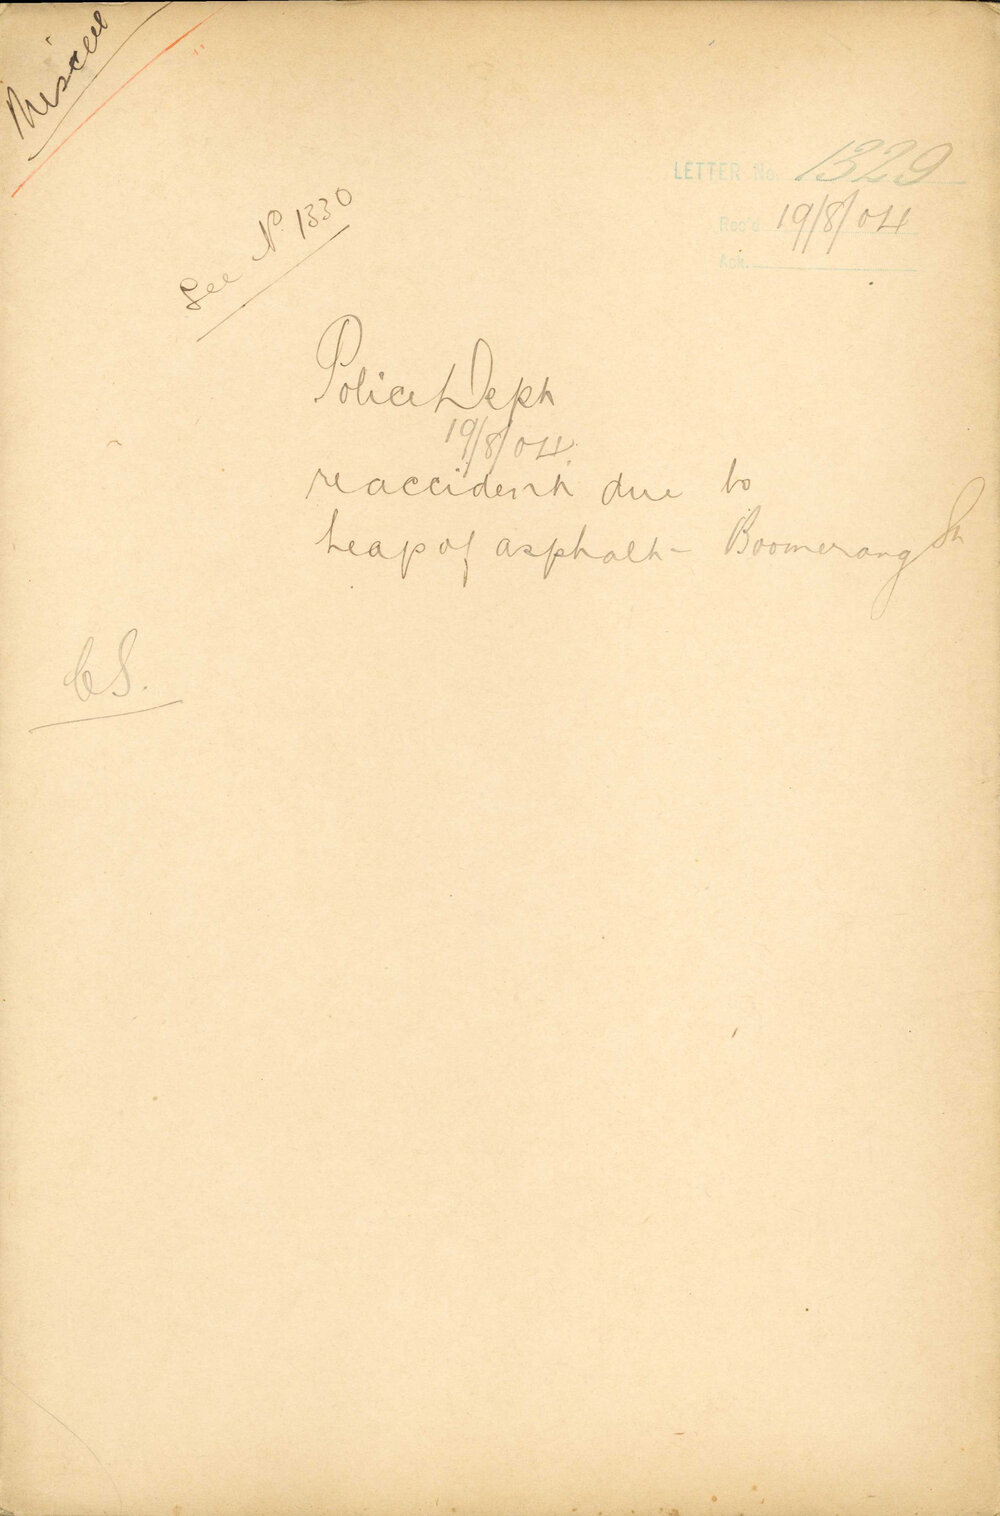 Miscell
LETTER No. 1329
Rec'd 19/8/04
Ack.
See No. 1330
Police Dept
19/8/04
re accident due to
heap of asphalt - Boomerang St
CS.